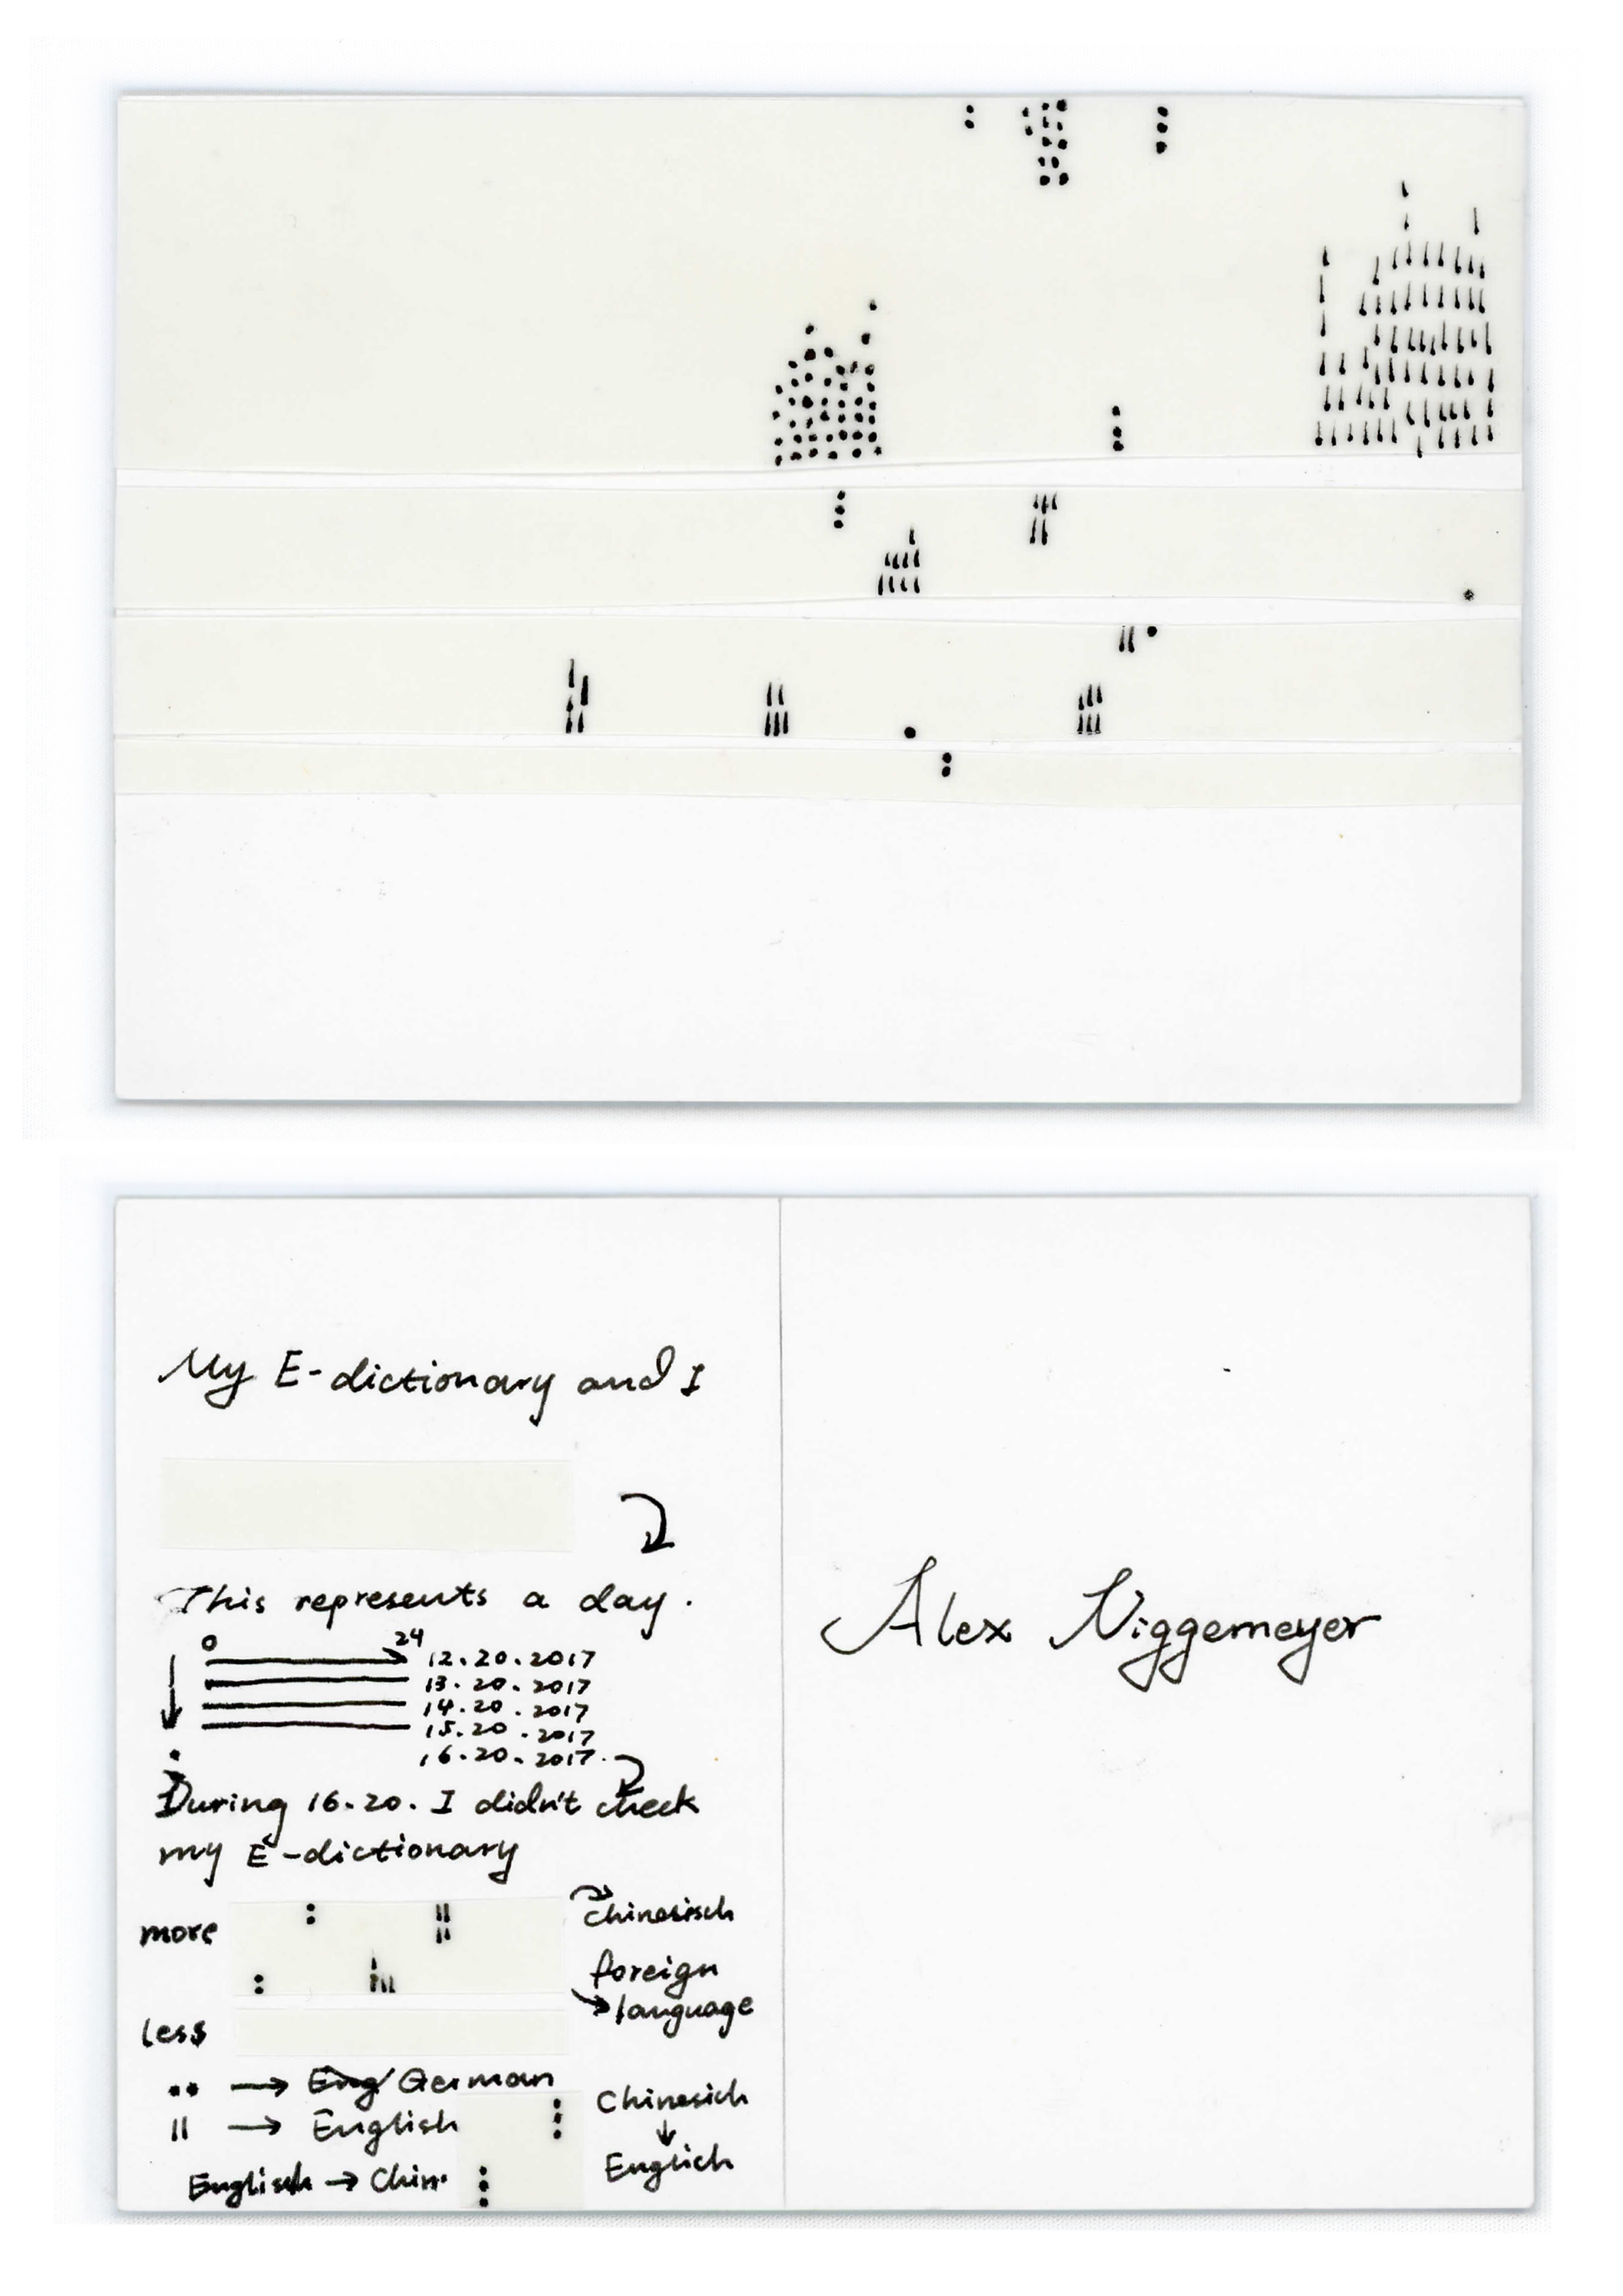 My E-dictionary and I
This represents a day.
0 24
12.20.2017
13.20.2017
14.20.2017
15.20.2017
16.20.2017.
During 16.20. I didn't check
my E-dictionary
more
Chinesisch
foreign
language
less
Eng/German
English
Chinesich
Englich
Englisch → Chin.
Alex Niggemeyer